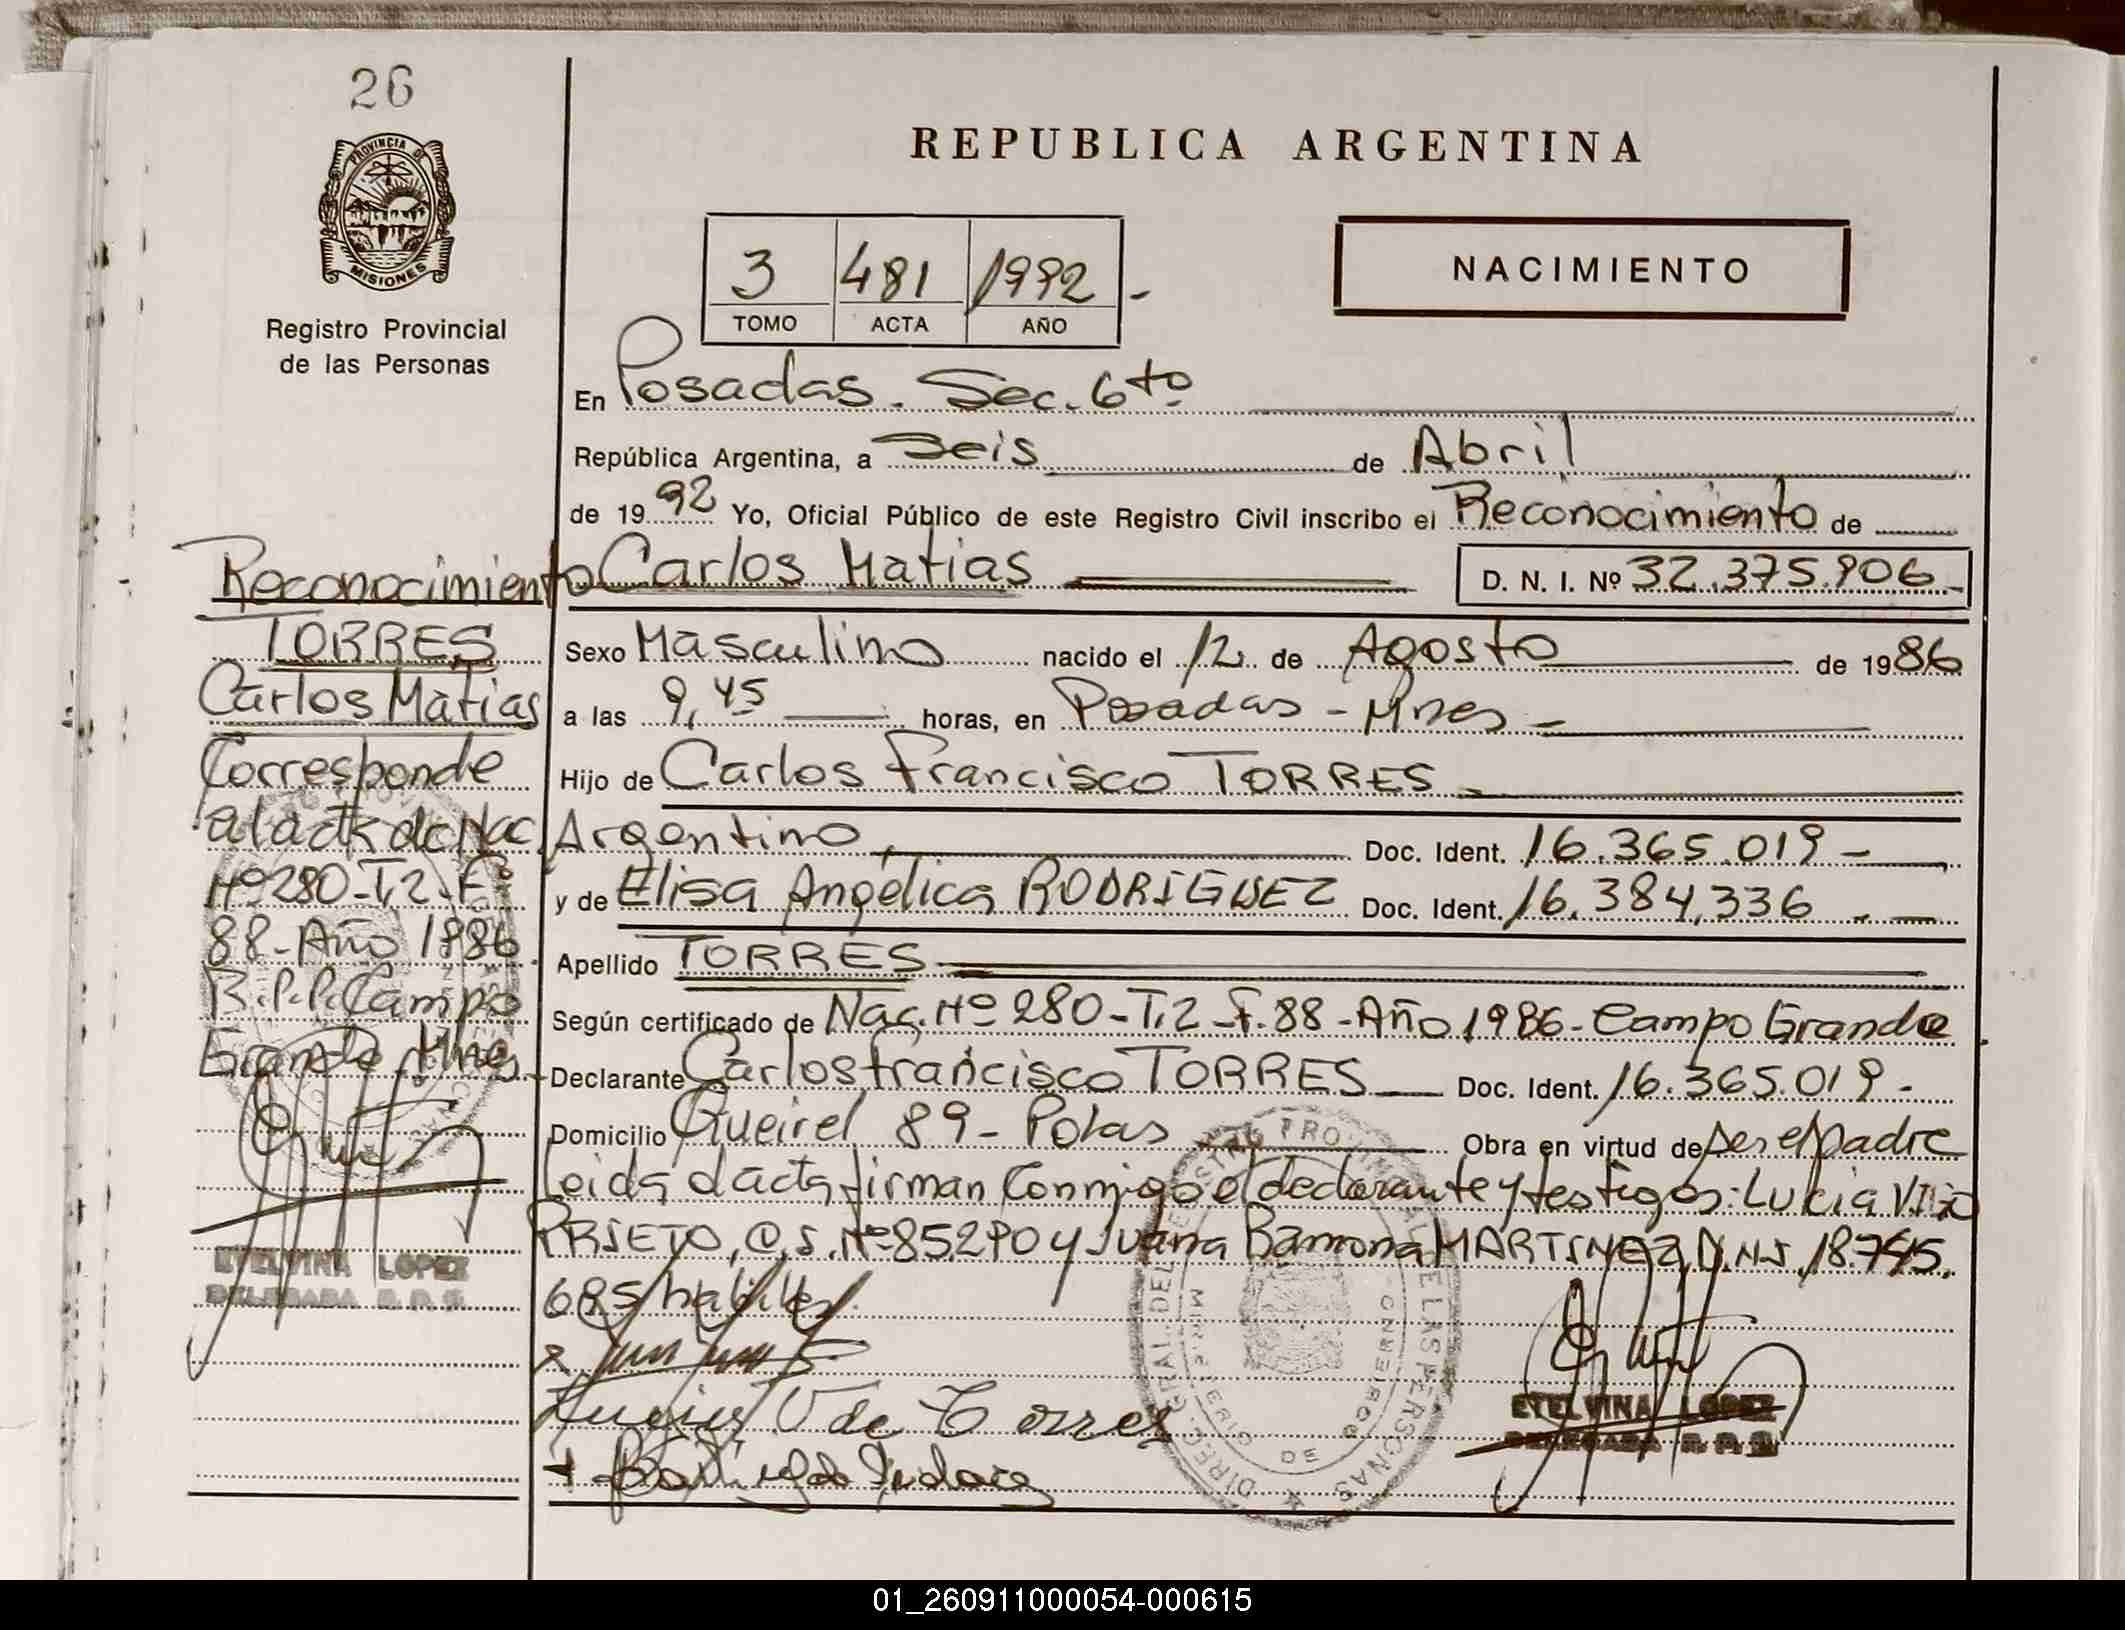 26
PROVINCIA DE
MISIONES
Registro Provincial
de las Personas
REPUBLICA ARGENTINA
3 481 1992 -
TOMO ACTA AÑO
NACIMIENTO
En Posadas. Sec. 6to
República Argentina, a Seis de Abril
de 1992 Yo, Oficial Público de este Registro Civil inscribo el Reconocimiento de
Carlos Matias D. N. I. Nº 32.375.906-
Sexo Masculino nacido el 12 de Agosto de 1986
a las 9,45 horas, en Posadas - Mnes -
Hijo de Carlos Francisco TORRES
Argentino, Doc. Ident. 16.365.019 -
y de Elisa Angélica RODRIGUEZ Doc. Ident. 16.384.336
Apellido TORRES
Según certificado de Nac. Nº 280-T.2-F.88-Año 1986-Campo Grande
Declarante Carlos Francisco TORRES Doc. Ident. 16.365.019-
Domicilio Queirel 89 - Pdas Obra en virtud de Ser el padre
Leida el acta, firman conmigo el declarante y testigos: Lucia
PRIETO, C.I. Nº 85290 y Juana Ramona MARTINEZ D.N.I. 18.745.
685 habiles.
V de Torres
ETELVINA LOPEZ
DELEGADA R. P. P.
Reconocimiento
TORRES
Carlos Matias
Corresponde
al acta de Nac.
Nº 280-T.2-Fº
88-Año 1986
R.P.P. Campo
Grande Mnes
ETELVINA LOPEZ
DELEGADA R. P. P.
DIREC. GRAL. DEL REGISTRO PROVINCIAL DE LAS PERSONAS
MINISTERIO DE GOBIERNO
01_260911000054-000615